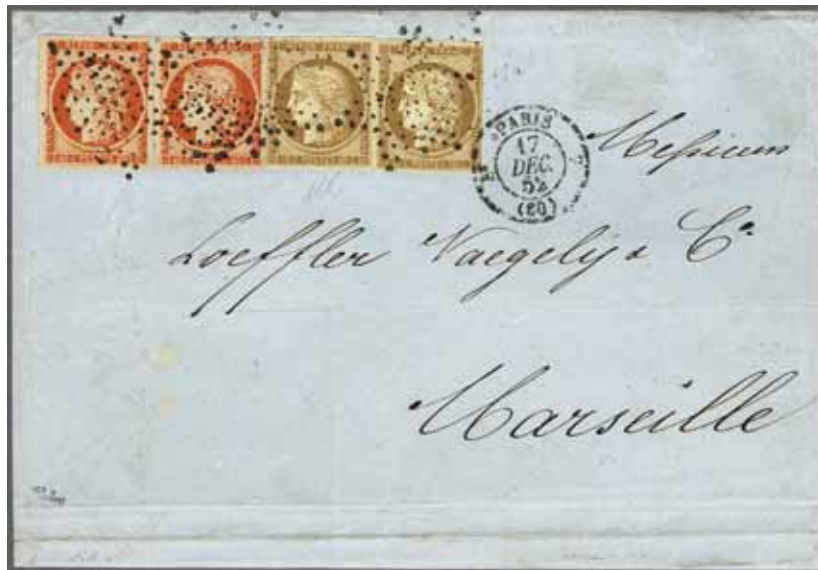 PARIS
17
DEC.
52
(60)
Messieurs
Loeffler Naegely & Cie
Marseille